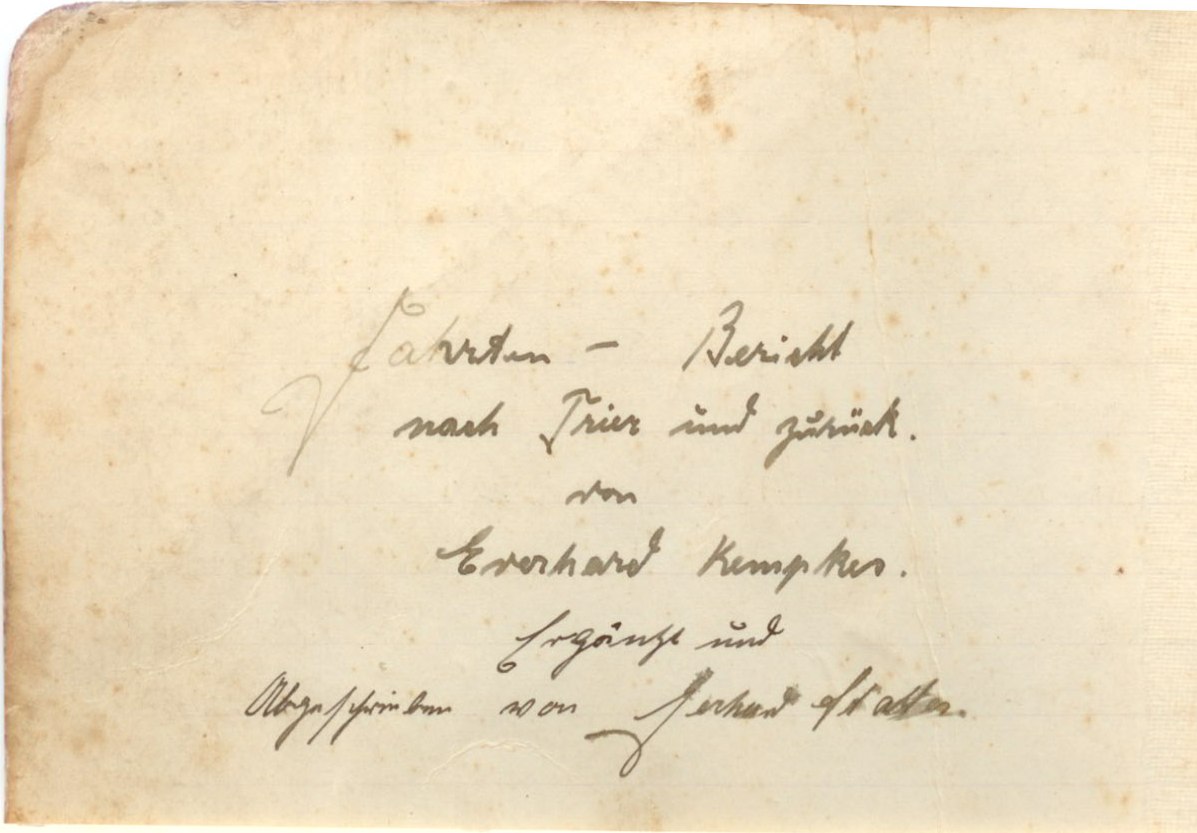 Fahrten - Bericht
nach Trier und zurück.
von
Everhard Kempkes.
Ergänzt und
Abgeschrieben von Gerhard